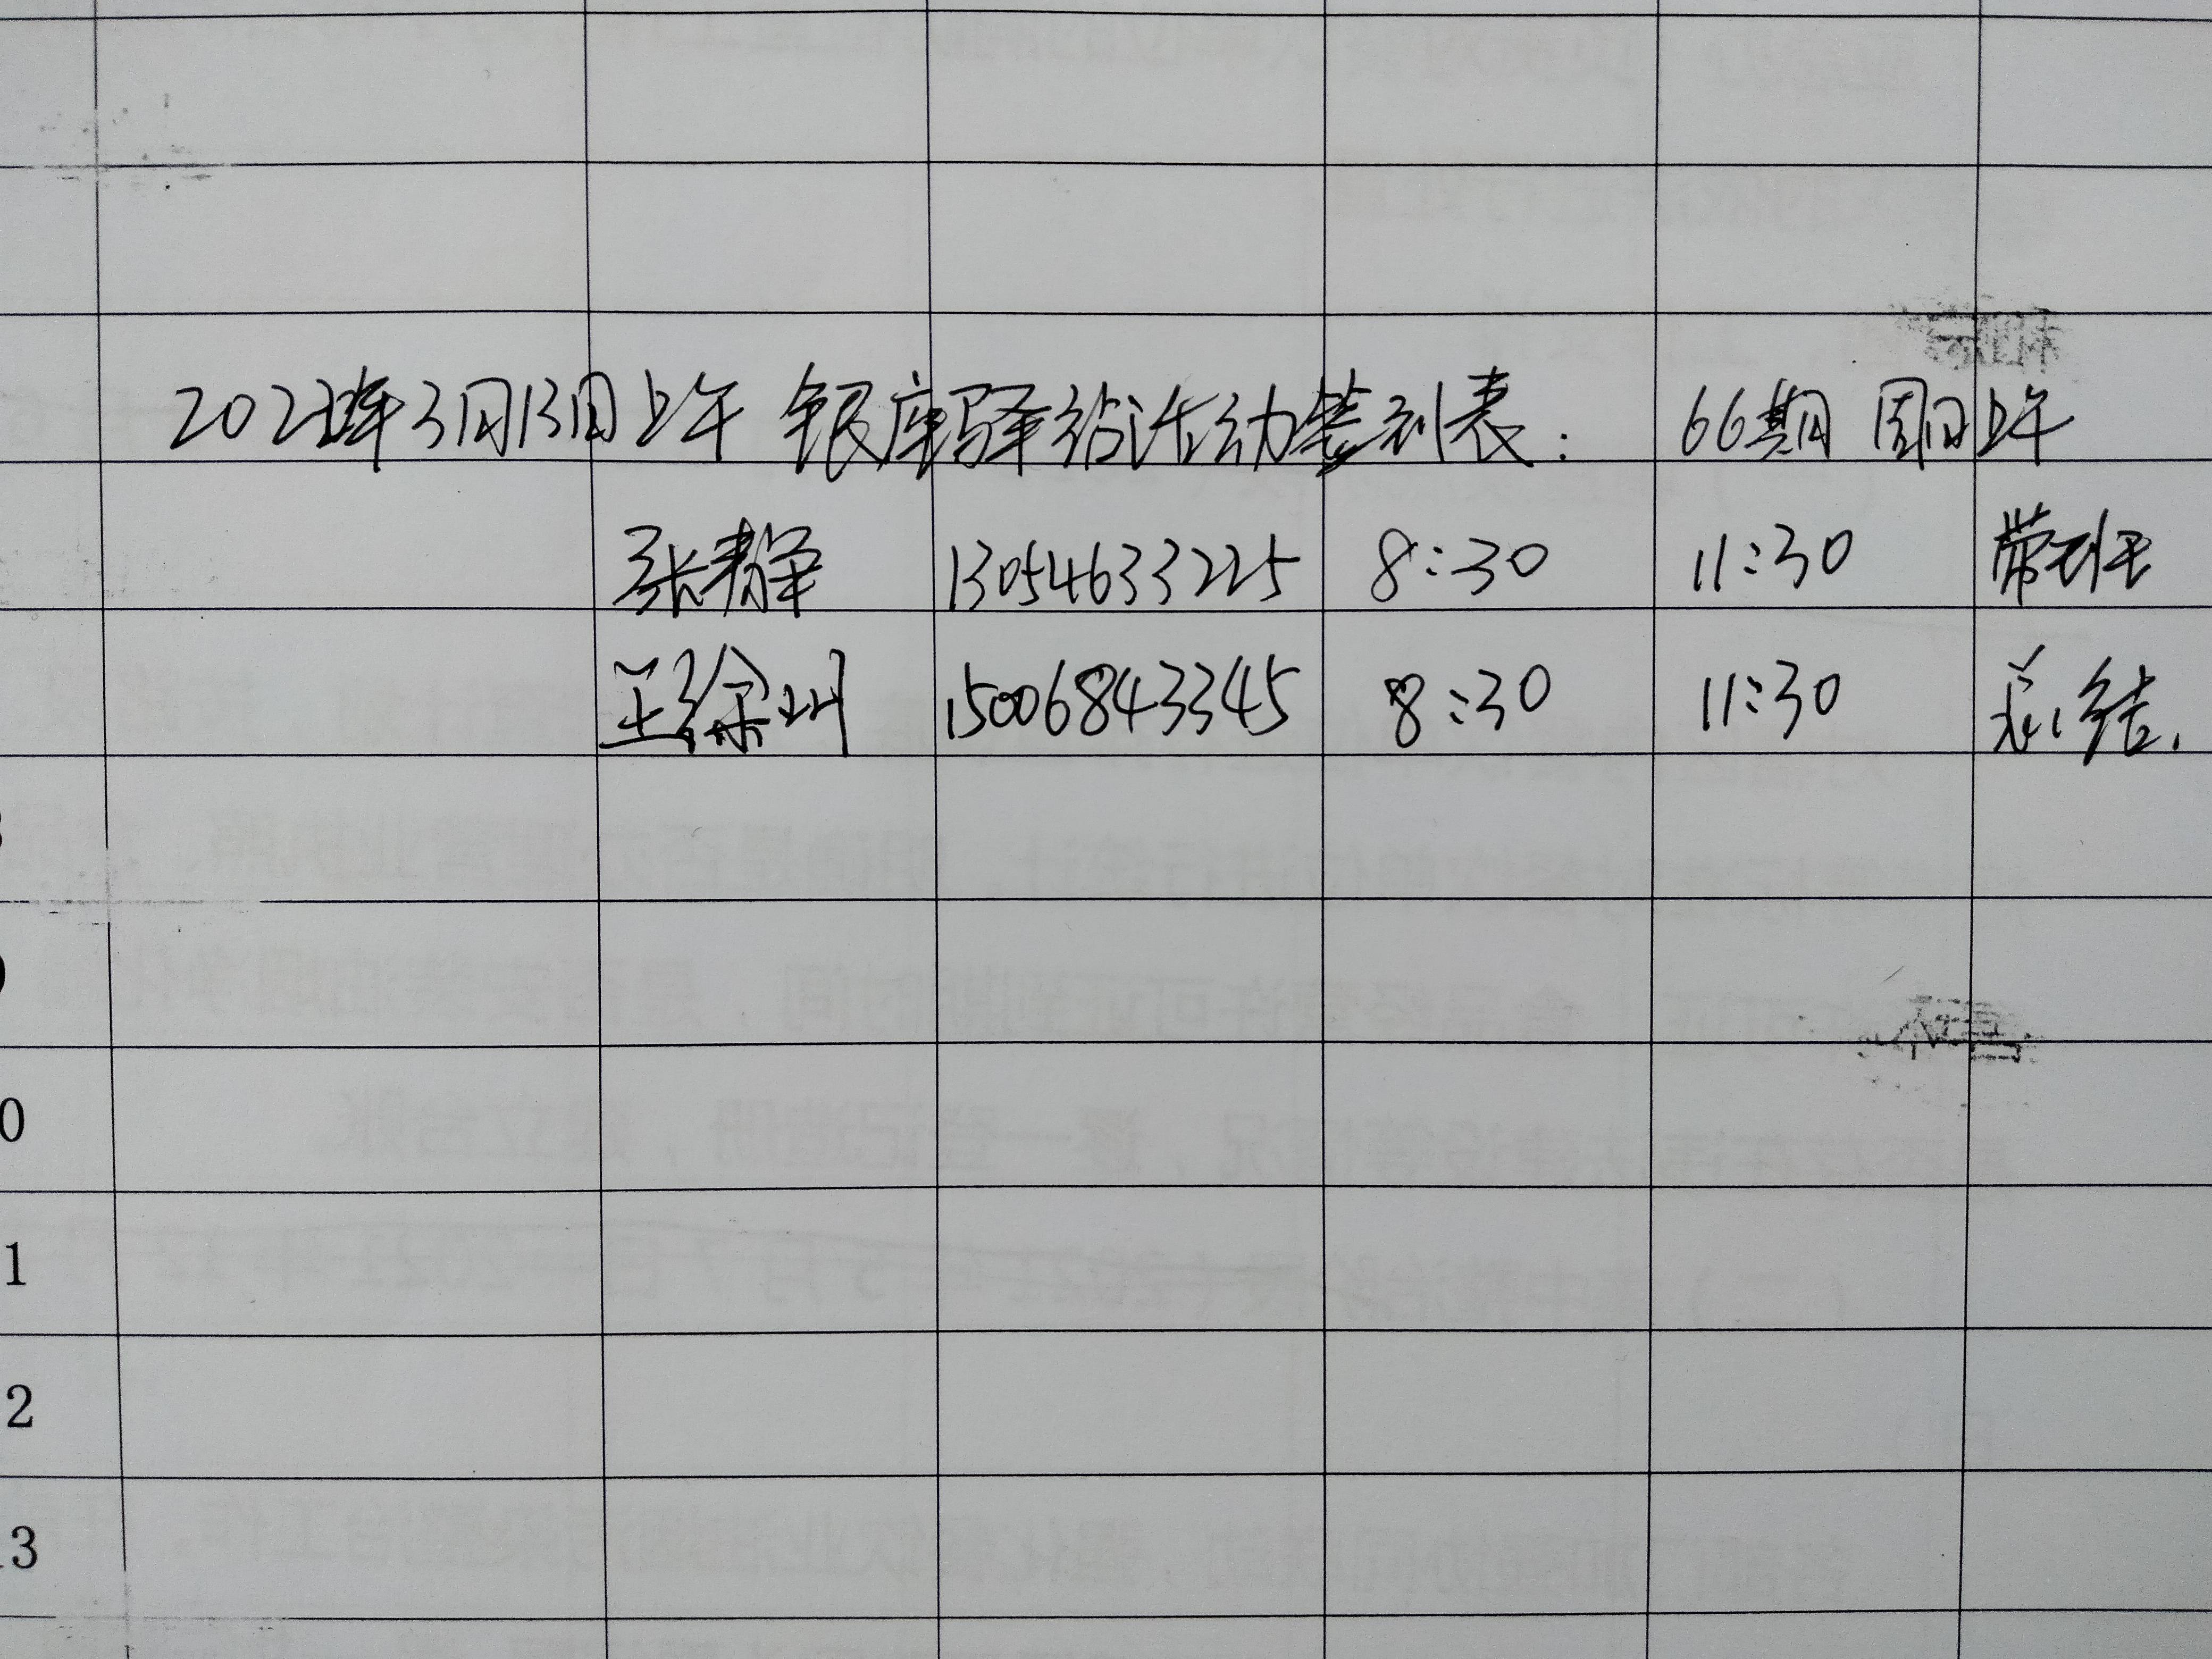 2022年3月13日上午 银座驿站活动签到表: 66期 周日上午
张静 13054633225 8:30 11:30 带班
王徐州 15006843345 8:30 11:30 总结.
0
1
2
13